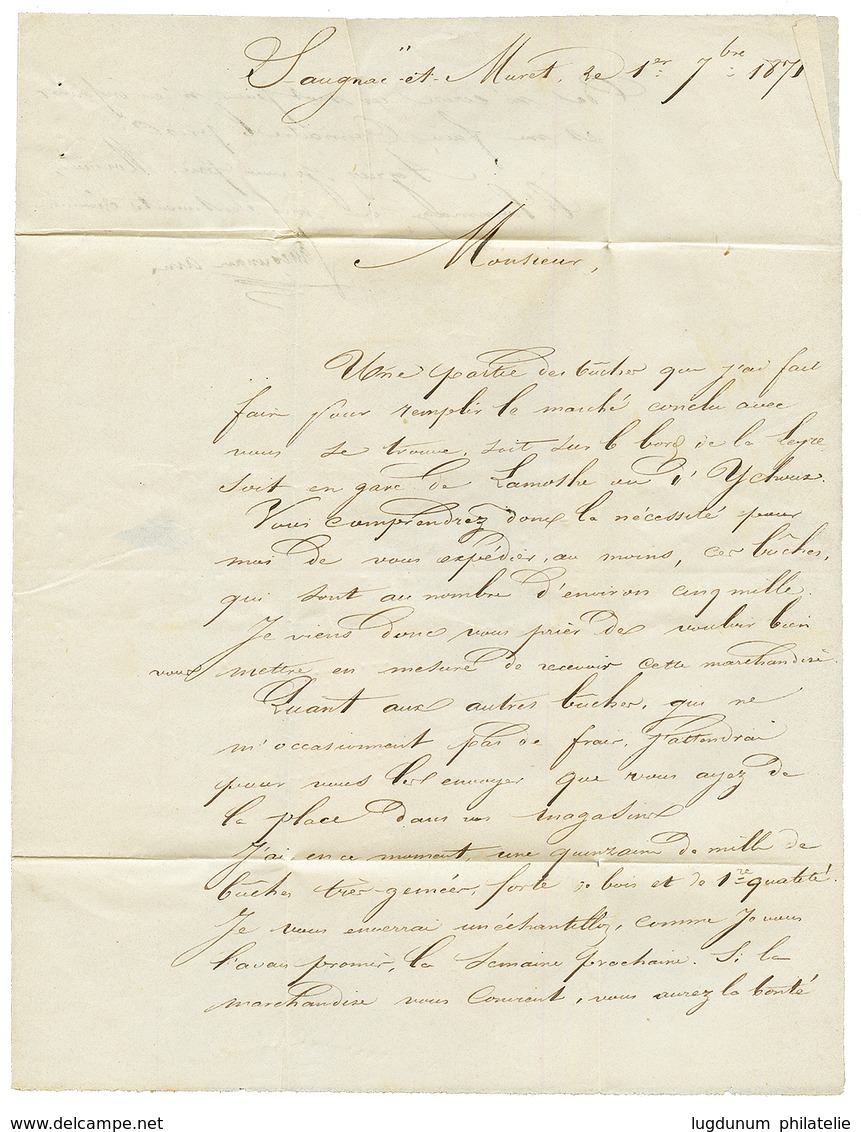 Saugnac-et-Muret, le 1er 7bre 1871
Monsieur,
Une partie des bûches que j'ai fait
faire pour remplir le marché conclu avec
vous se trouve, soit sur le bord de la Leyre
soit en gare de Lamothe ou d'Ychoux.
Vous comprendrez donc la nécessité pour
moi de vous expédier, au moins, ces bûches,
qui sont au nombre d'environ cinq mille.
Je viens donc vous prier de vouloir bien
vous mettre en mesure de recevoir cette marchandise.
Quant aux autres bûches, qui ne
m'occasionnent pas de frais, j'attendrai
pour vous les envoyer que vous ayez de
la place dans vos magasins
J'ai, en ce moment, une quinzaine de mille de
bûches très-gemées, forte de bois et de 1re qualité.
Je vous enverrai un échantillon, comme Je vous
l'avais promis, la semaine prochaine. Si la
marchandise vous convient, vous aurez la bonté
www.delcampe.net
lugdunum philatelie